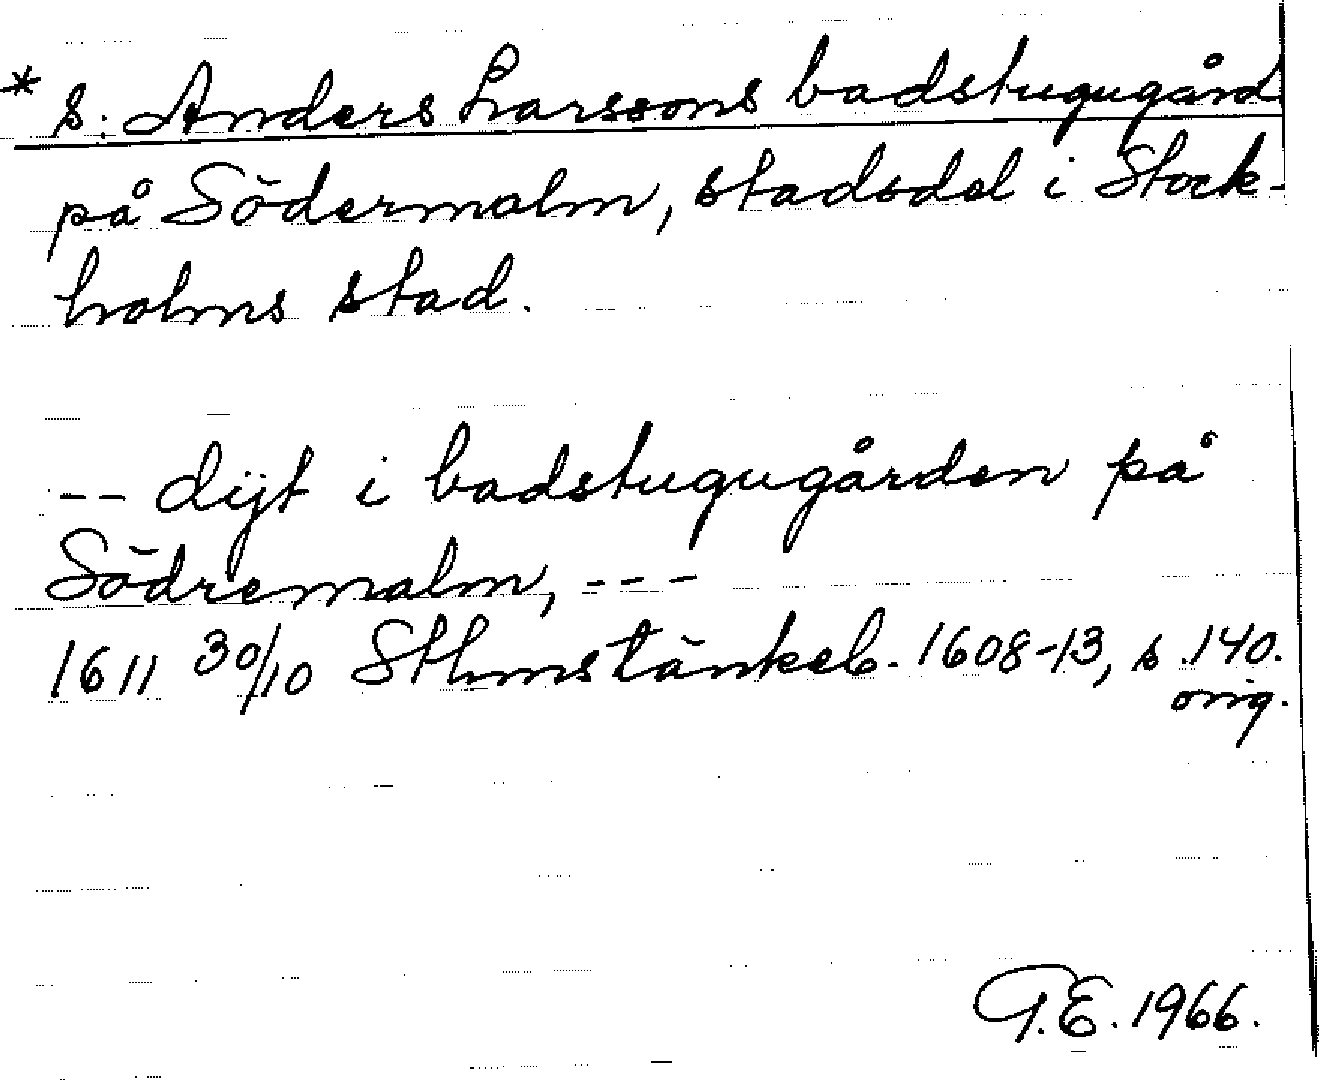 * S. Anders Larssons badstugugård
på Södermalm, stadsdel i Stock-
holms stad.
-- dijt i badstugugården på
Södremalm, ---
1611 30/10 Sthms tänkeb. 1608-13, s. 140.
orig.
G.E. 1966.